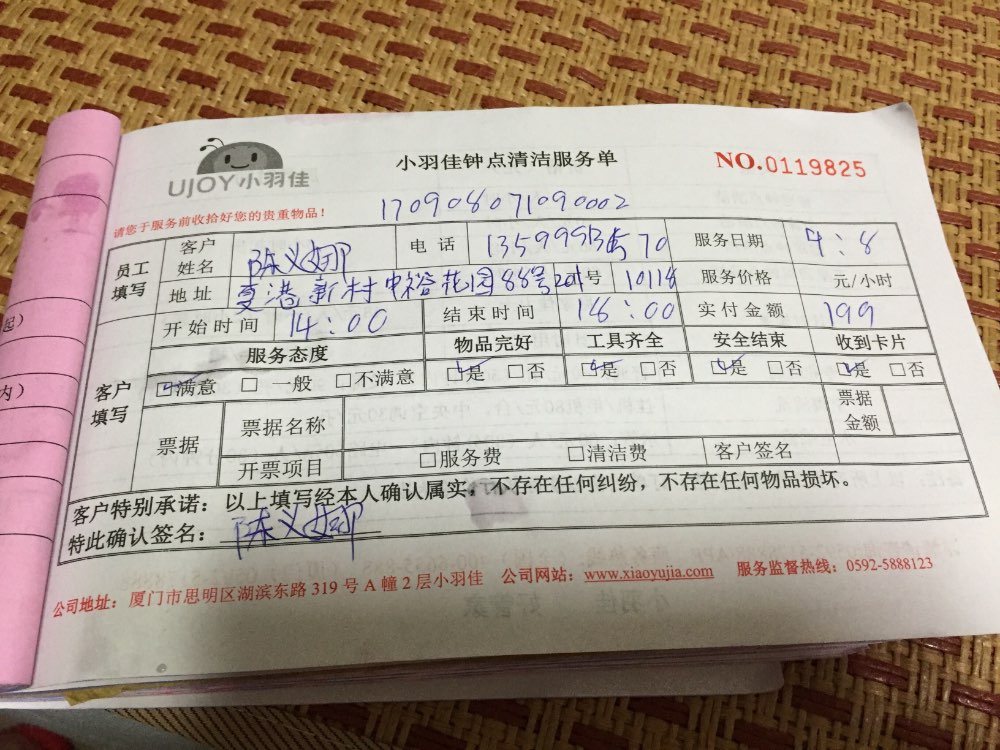 UJOY小羽佳
小羽佳钟点清洁服务单
NO.0119825
请您于服务前收拾好您的贵重物品！
170908071090002
员工填写 客户姓名 陈义娜 电话 服务日期 9:8
地址 夏港新村中裕花园88号 号 10118 服务价格 元/小时
开始时间 14:00 结束时间 18:00 实付金额 199
客户填写 服务态度 物品完好 工具齐全 安全结束 收到卡片
满意 □ 一般 □不满意 是 □否 是 □否 是 □否 是 □否
票据 票据名称 票据金额
开票项目 □服务费 □清洁费 客户签名
客户特别承诺：以上填写经本人确认属实，不存在任何纠纷，不存在任何物品损坏。
特此确认签名：陈义娜
公司地址：厦门市思明区湖滨东路 319 号 A 幢 2 层小羽佳 公司网站：www.xiaoyujia.com 服务监督热线：0592-5888123
起）
内）